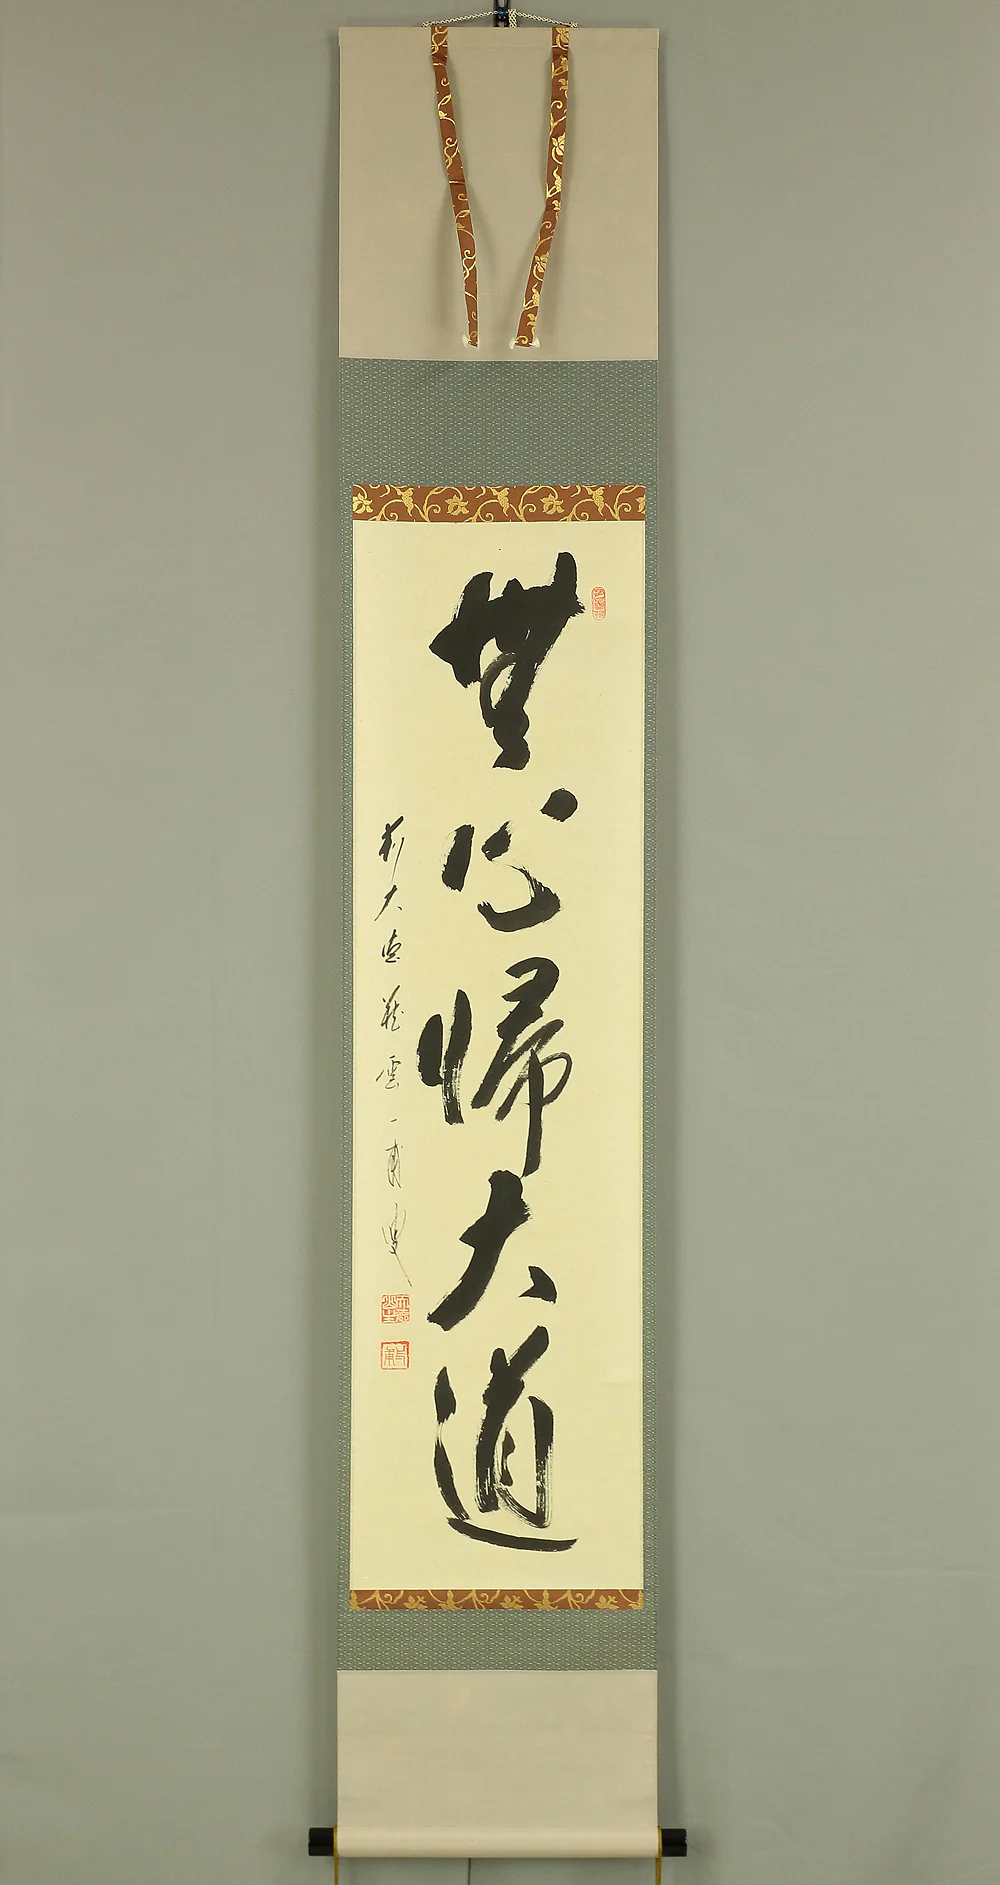 無心帰大道
前大徳龍雲一甫叟